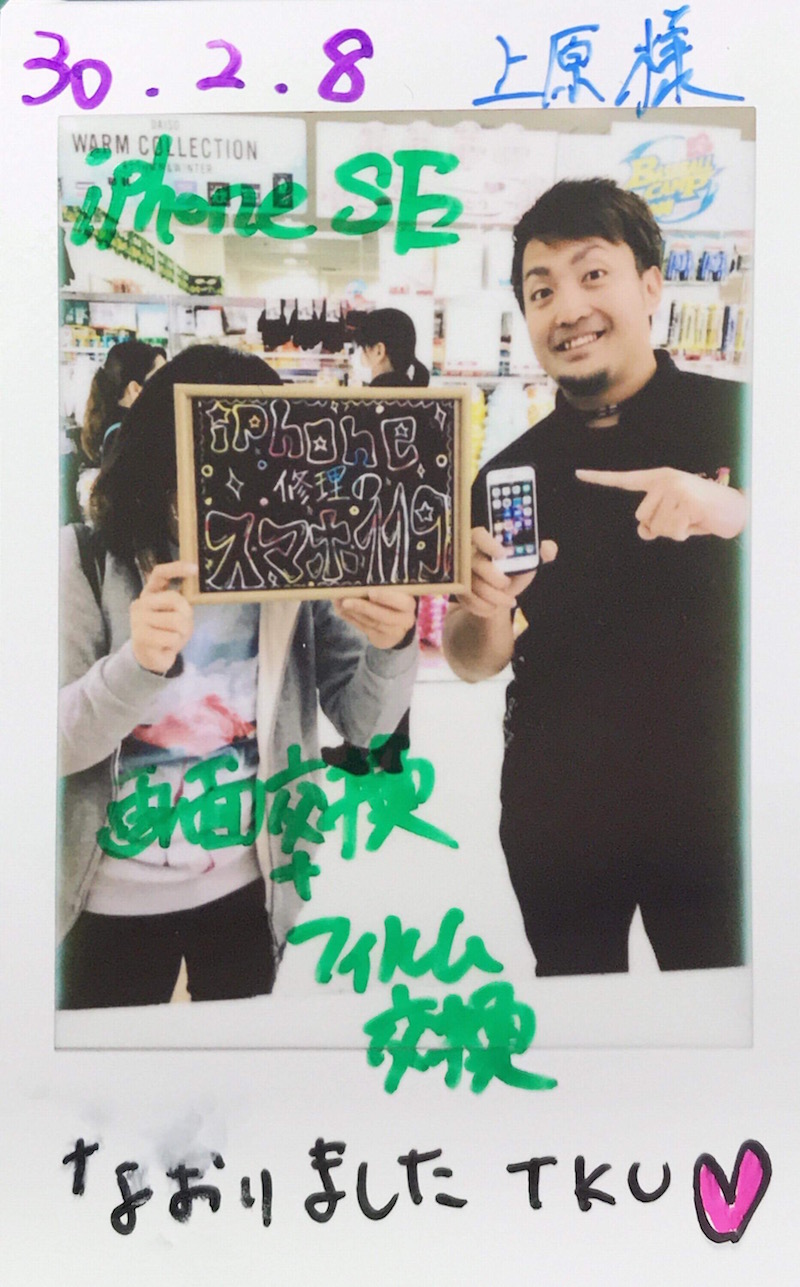 30.2.8 上原様
DAISO
WARM COLLECTION
iPhone SE
iPhone
修理の
スマホ119
画面交換
+
フィルム
交換
なおりました TKU